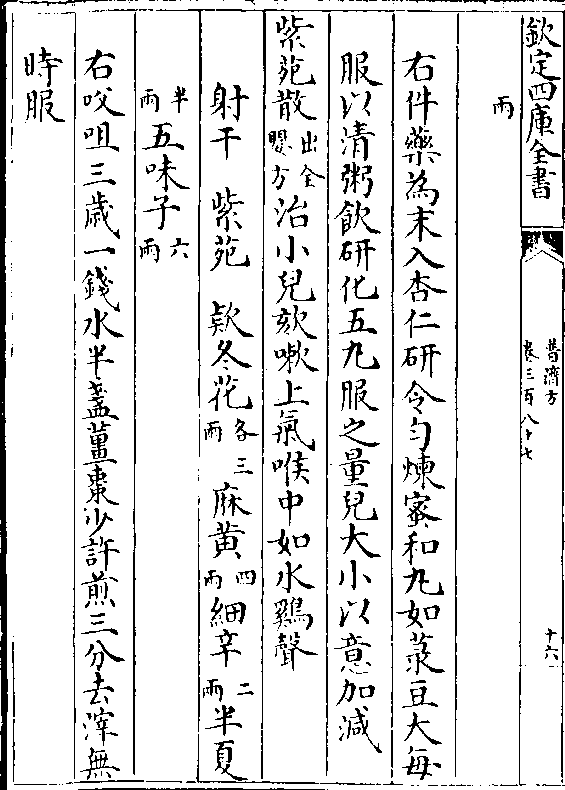 欽定四庫全書
普濟方
卷三百八十七
十六
兩
右件藥為末入杏仁研令勻煉蜜和丸如菉豆大每
服以清粥飲研化五丸服之量兒大小以意加減
紫苑散出全嬰方治小兒欬嗽上氣喉中如水鷄聲
射干 紫苑 欵冬花各三兩 麻黄四兩 細辛二兩 半夏
半兩 五味子六兩
右㕮咀三歳一錢水半盞薑棗少許煎三分去滓無
時服